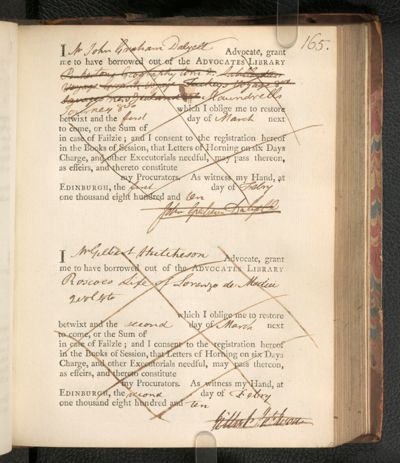 165.
I Mr John Graham Dalyell Advocate, grant
me to have borrowed out of the ADVOCATES LIBRARY
Maundrells
which I oblige me to restore
betwixt and the first day of March next
to come, or the Sum of
in case of Failzie; and I consent to the registration hereof
in the Books of Session, that Letters of Horning on six Days
Charge, and other Executorials needful, may pass thereon,
as effeirs, and thereto constitute
my Procurators. As witness my Hand, at
EDINBURGH, the first day of Febry
one thousand eight hundred and ten
John Graham Dalyell
I Mr Gilbert Hutcheson Advocate, grant
me to have borrowed out of the ADVOCATES LIBRARY
Roscoes Life of Lorenzo de Medici
2 vol 4to
which I oblige me to restore
betwixt and the second day of March next
to come, or the Sum of
in case of Failzie; and I consent to the registration hereof
in the Books of Session, that Letters of Horning on six Days
Charge, and other Executorials needful, may pass thereon,
as effeirs, and thereto constitute
my Procurators. As witness my Hand, at
EDINBURGH, the second day of Febry
one thousand eight hundred and ten